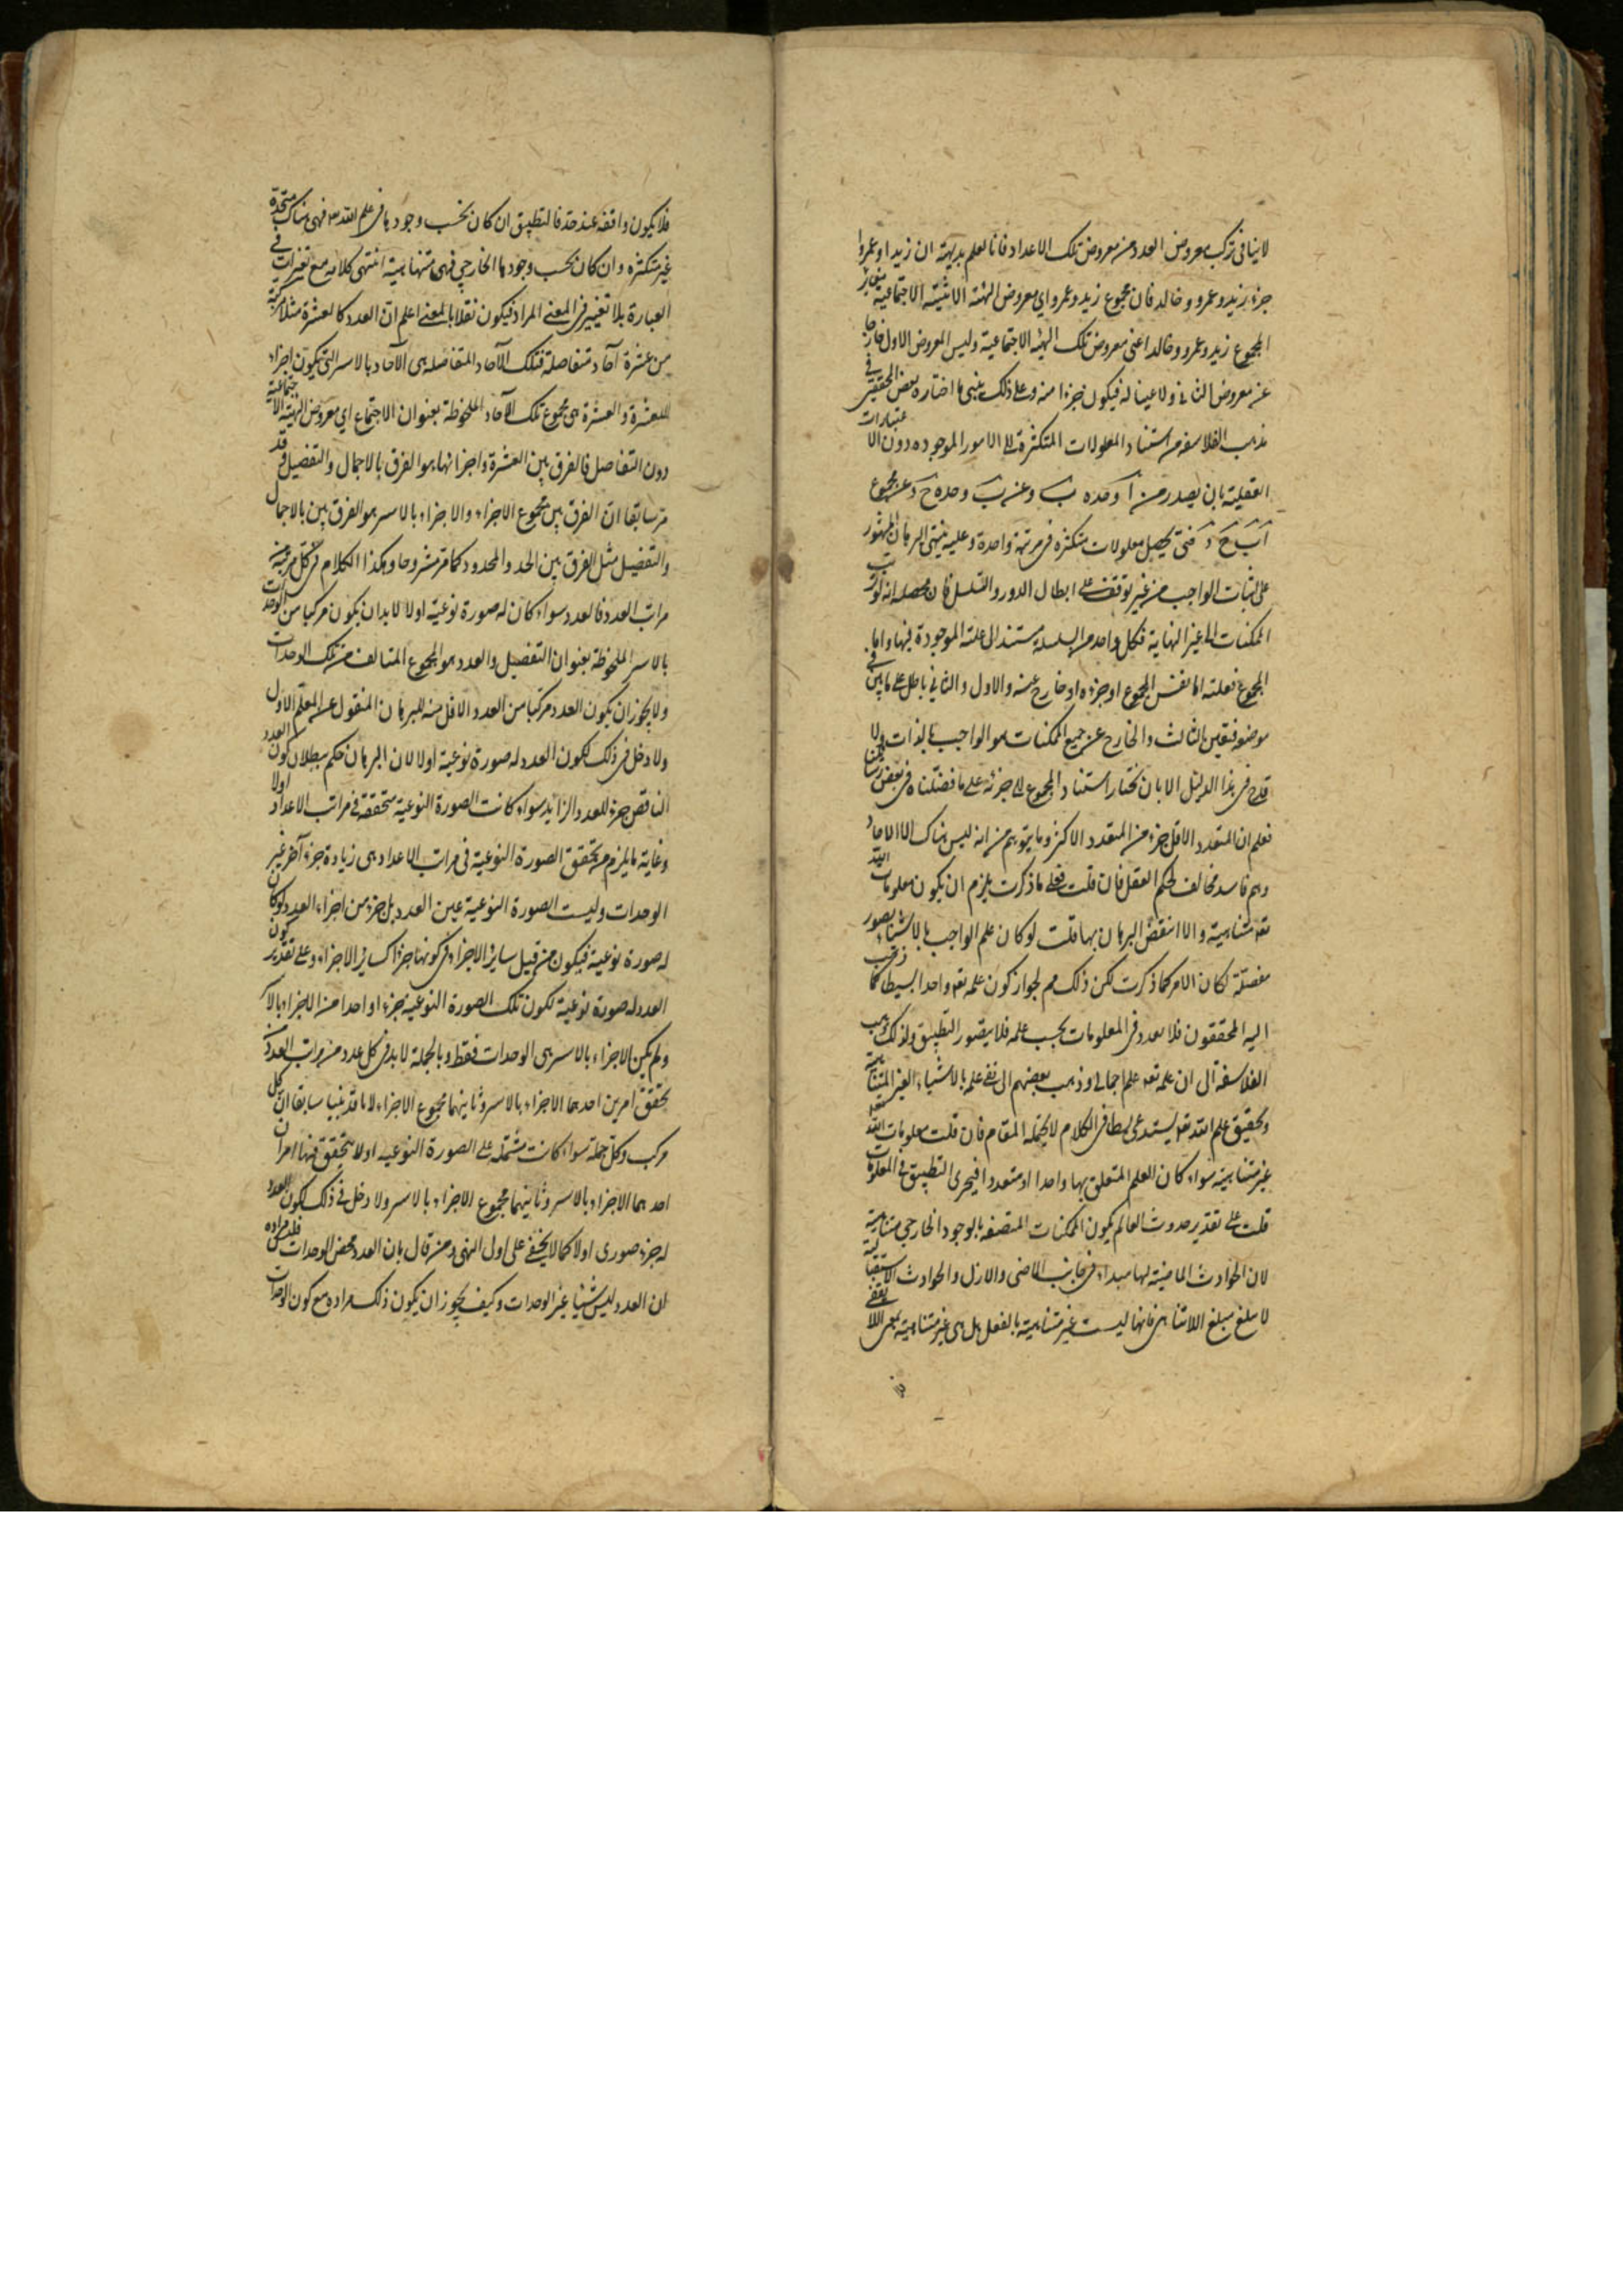 لاينافى تركب معروض العدد من معروض تلك الاعداد فانا نعلم بديهة ان زيدا وعمروا
جزء زيد وعمرو وخالد فان مجموع زيد وعمرو اي معروض الهيئة الاثنينية الاجتماعية مغاير
المجموع زيد وعمرو وخالد اعنى معروض تلك الهيئة الاجتماعية وليس المعروض الاول خارجا
عن معروض الثانى ولا عينا له فيكون جزءا منه وعلى ذلك يبنى ما اختاره بعض المحققين فى
مذهب الفلاسفة من استناد المعلولات المتكثرة الى الامور الموجودة دون الاعتبارات
العقلية بان يصدر من آ وحده ب وعن ب وحده ج وعن مجموع
آ ب ج د فحتى يحصل معلولات متكثرة فى مرتبة واحدة وعليه يبتنى البرهان المشهور
على اثبات الواجب من غير توقف على ابطال الدور والتسلسل فان محصله انه لو ترتب
الممكنات الى غير النهاية فكل واحد من السلسلة يستند الى علته الموجودة فيها واما
المجموع فعلته اما نفس المجموع او جزءه او خارج عنه والاول والثاني باطل على ما بين فى
موضعه فتعين الثالث والخارج عن جميع الممكنات هو الواجب بالذات ولا
قدح فى هذا الدليل الا بان نختار استناد المجموع الى جزئه على ما فصلناه فى بعض
فعلم ان المتعدد الاقل جزء من المتعدد الاكثر وما يتوهم من انه ليس هناك الا الاحاد
وهم فاسد مخالف لحكم العقل فان قلت فعلى ما ذكرت يلزم ان يكون معلومات الله
تعه متناهية والا انتقض البرهان بها قلت لو كان علم الواجب بالاشياء بصور
مفصلة لكان الامر كما ذكرت لكن ذلك مم لجواز كون علمه تعه واحدا بسيطا كما ذهب
اليه المحققون فلا تعدد فى المعلومات بحسب علمه فلا يتصور التطبيق ولذلك ذهب
الفلاسفة الى ان علمه تعه علم اجمالى وذهب بعضهم الى نفى علمه بالاشياء الغير المتناهية
وتحقيق علم الله تعه يستدعى بسطا فى الكلام لا يحتمله المقام فان قلت معلومات الله تعه
غير متناهية سواء كان العلم المتعلق بها واحدا او متعددا فيجرى التطبيق فى المعلومات
قلت على تقدير حدوث العالم يكون الممكنات المتصفة بالوجود الخارجي متناهية
لان الحوادث الماضية لها مبداء فى جانب الماضى والازل والحوادث الاستقبالية
لا تبلغ مبلغ اللاتناهى فانها ليست غير متناهية بالفعل بل هى غير متناهية بمعنى اللا تقفى
فلا يكون واقفة عند حد فالتطبيق ان كان بحسب وجودها فى علم الله تع فهى هناك متحدة
غير متكثرة وان كان بحسب وجودها الخارجي فهى متناهية انتهى كلامه مع تغيرات فى
العبارة بلا تغيير فى المعنى المراد فيكون نقلا بالمعنى اعلم ان العدد كالعشرة مثلا مركبة
من عشرة آحاد متفاصلة فتلك الآحاد المتفاصلة هى الآحاد بالاسر التى يكون اجزاء
للعشرة والعشرة هى مجموع تلك الآحاد الملحوظة بعنوان الاجتماع اي معروض الهيئة الاجتماعية
دون التفاصل فالفرق بين العشرة واجزائها هو الفرق بالاجمال والتفصيل وقد
مر سابقا ان الفرق بين مجموع الاجزاء والاجزاء بالاسر هو الفرق بين بالاجمال
والتفصيل مثل الفرق بين الحد والمحدود كما مر مشروحا وهكذا الكلام فى كل مرتبة من
مراتب العدد فالعدد سواء كان له صورة نوعية اولا لابد ان يكون مركبا من الوحدات
بالاسر الملحوظة بعنوان التفصيل والعدد هو المجموع المتالف من تلك الوحدات
ولا يجوز ان يكون العدد مركبا من العدد الاقل منه للبرهان المنقول عن المعلم الاول
ولا دخل فى ذلك لكون العدد له صورة نوعية اولا لان البرهان حكم ببطلان كون العدد
الناقص جزء للعدد الزايد سواء كانت الصورة النوعية متحققة فى مراتب الاعداد اولا
وغاية ما يلزم من تحقق الصورة النوعية فى مراتب الاعداد هى زيادة جزء آخر غير
الوحدات وليست الصورة النوعية عين العدد بل جزء من اجزاء العدد لو كان
له صورة نوعية فيكون من قبيل ساير الاجزاء فى كونها جزءا كساير الاجزاء وعلى تقدير كون
العدد له صورة نوعية لكون تلك الصورة النوعية جزءا واحدا من الاجزاء بالاسر
ولم يكن الاجزاء بالاسر هى الوحدات فقط وبالجملة لابد فى كل عدد من مراتب العدد
تحقق امرين احدهما الاجزاء بالاسر وثانيهما مجموع الاجزاء لما قد بينا سابقا ان كل
مركب وكل جملة سواء كانت مشتملة على الصورة النوعية اولا يتحقق فيها امران
احدهما الاجزاء بالاسر وثانيهما مجموع الاجزاء بالاسر ولا دخل فى ذلك لكون العدد
له جزء صورى اولا كما لا يخفى على اولى النهى ومن قال بان العدد محض الوحدات فليس مراده
ان العدد ليس شيئا غير الوحدات وكيف يجوز ان يكون ذلك مراده مع كون الوحدات